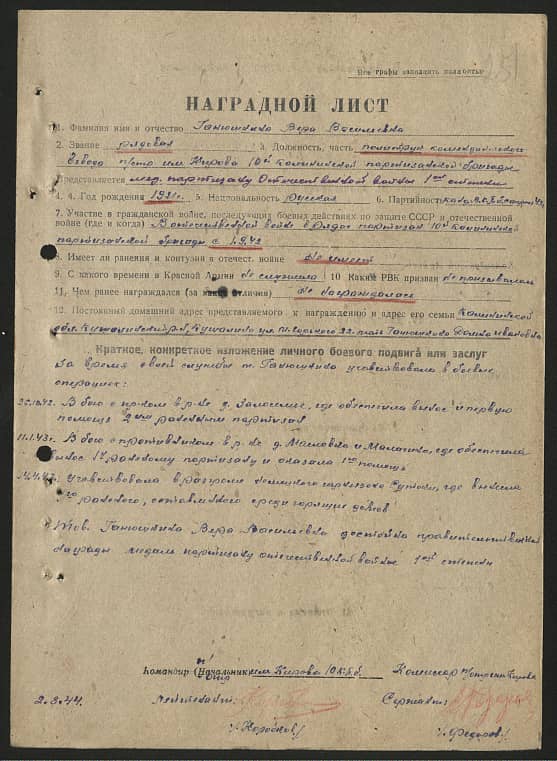 Все графы заполнить полностью
НАГРАДНОЙ ЛИСТ
1. Фамилия имя и отчество Ганюшкина Вера Васильевна
2. Звание рядовая 3. Должность, часть политрук комендантского
взвода п/отр им. Кирова 10й калининской партизанской бригады
Представляется мед. партизану Отечественной войны 1ой степени
4. 4. Год рождения 1921 г. 5. Национальность русская 6. Партийность
7. Участие в гражданской войне, последующих боевых действиях по защите СССР и отечественной
войне (где и когда) В отечественной войне в рядах партизан 10й калининской
партизанской бригады с 1.9.42
8. Имеет ли ранения и контузии в отечест. войне Не имеет
9. С какого времени в Красной Армии не служила 10 Каким РВК призван не призывалась
11. Чем ранее награждался (за какие отличия) Не награждалась
12. Постоянный домашний адрес представляемого к награждению и адрес его семьи Калининской
обл. Кушалинский р-н, Кушалино ул. М-Горского 22
Краткое, конкретное изложение личного боевого подвига или заслуг
За время своей службы т. Ганюшкина участвовала в боевых
операциях:
В бою с пр-ком в р-не д. где обеспечила вынос и первую
помощь 2 ум раненым партизан
11.1.43 г. В бою с противником в р-не д. и где обеспечила
вынос раненому партизану и оказала 1ю помощь
Участвовала в разгроме немецкого гарнизона где вынесла
раненого, оставленного среди горящих домов
Тов. Ганюшкина Вера Васильевна достойна правительственной
награды медали партизану отечественной войны 1ой степени
Командир (Начальник) им Кирова 10 к.п.б. Комиссар п/отр им Кирова
2.3.44. Лейтенант: Сержант:
/Коробков/ /Федоров/